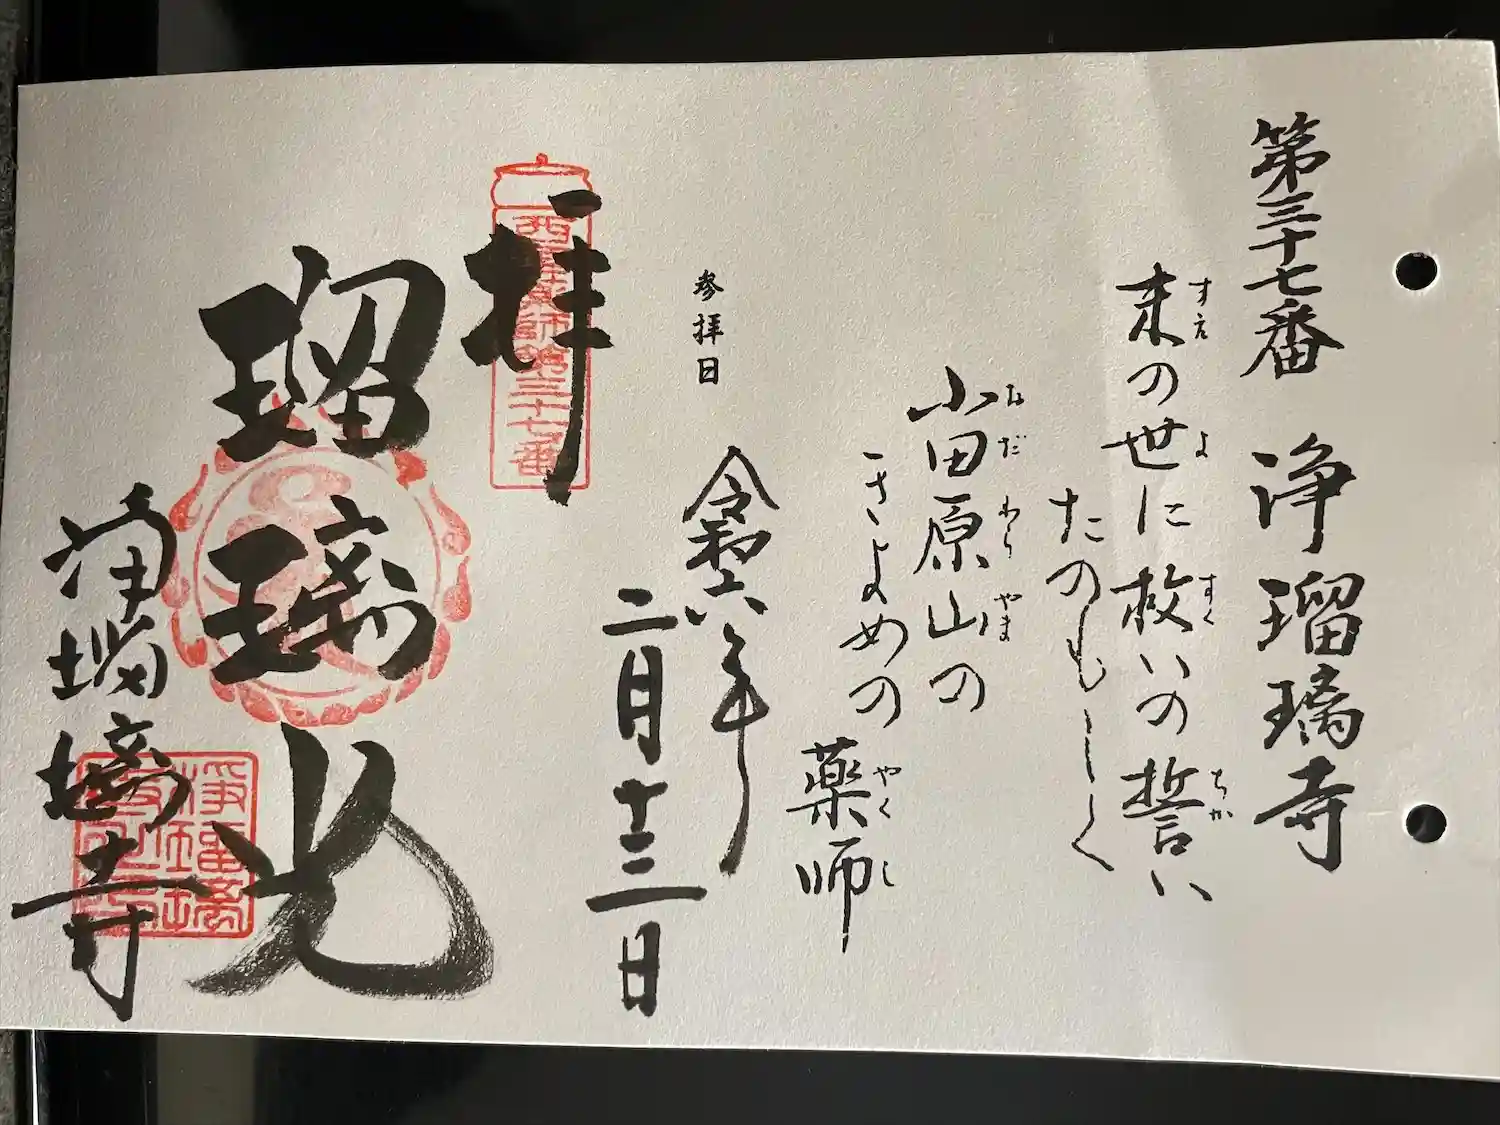 第三十七番 浄瑠璃寺
末の世に救いの誓い
すえ よ すく ちか
たのもしく
小田原山の
おだ わら やま
きよめの薬師
やくし
参拝日
令和六年
二月十三日
奉拝
西国薬師第三十七番
瑠璃光
浄瑠璃寺